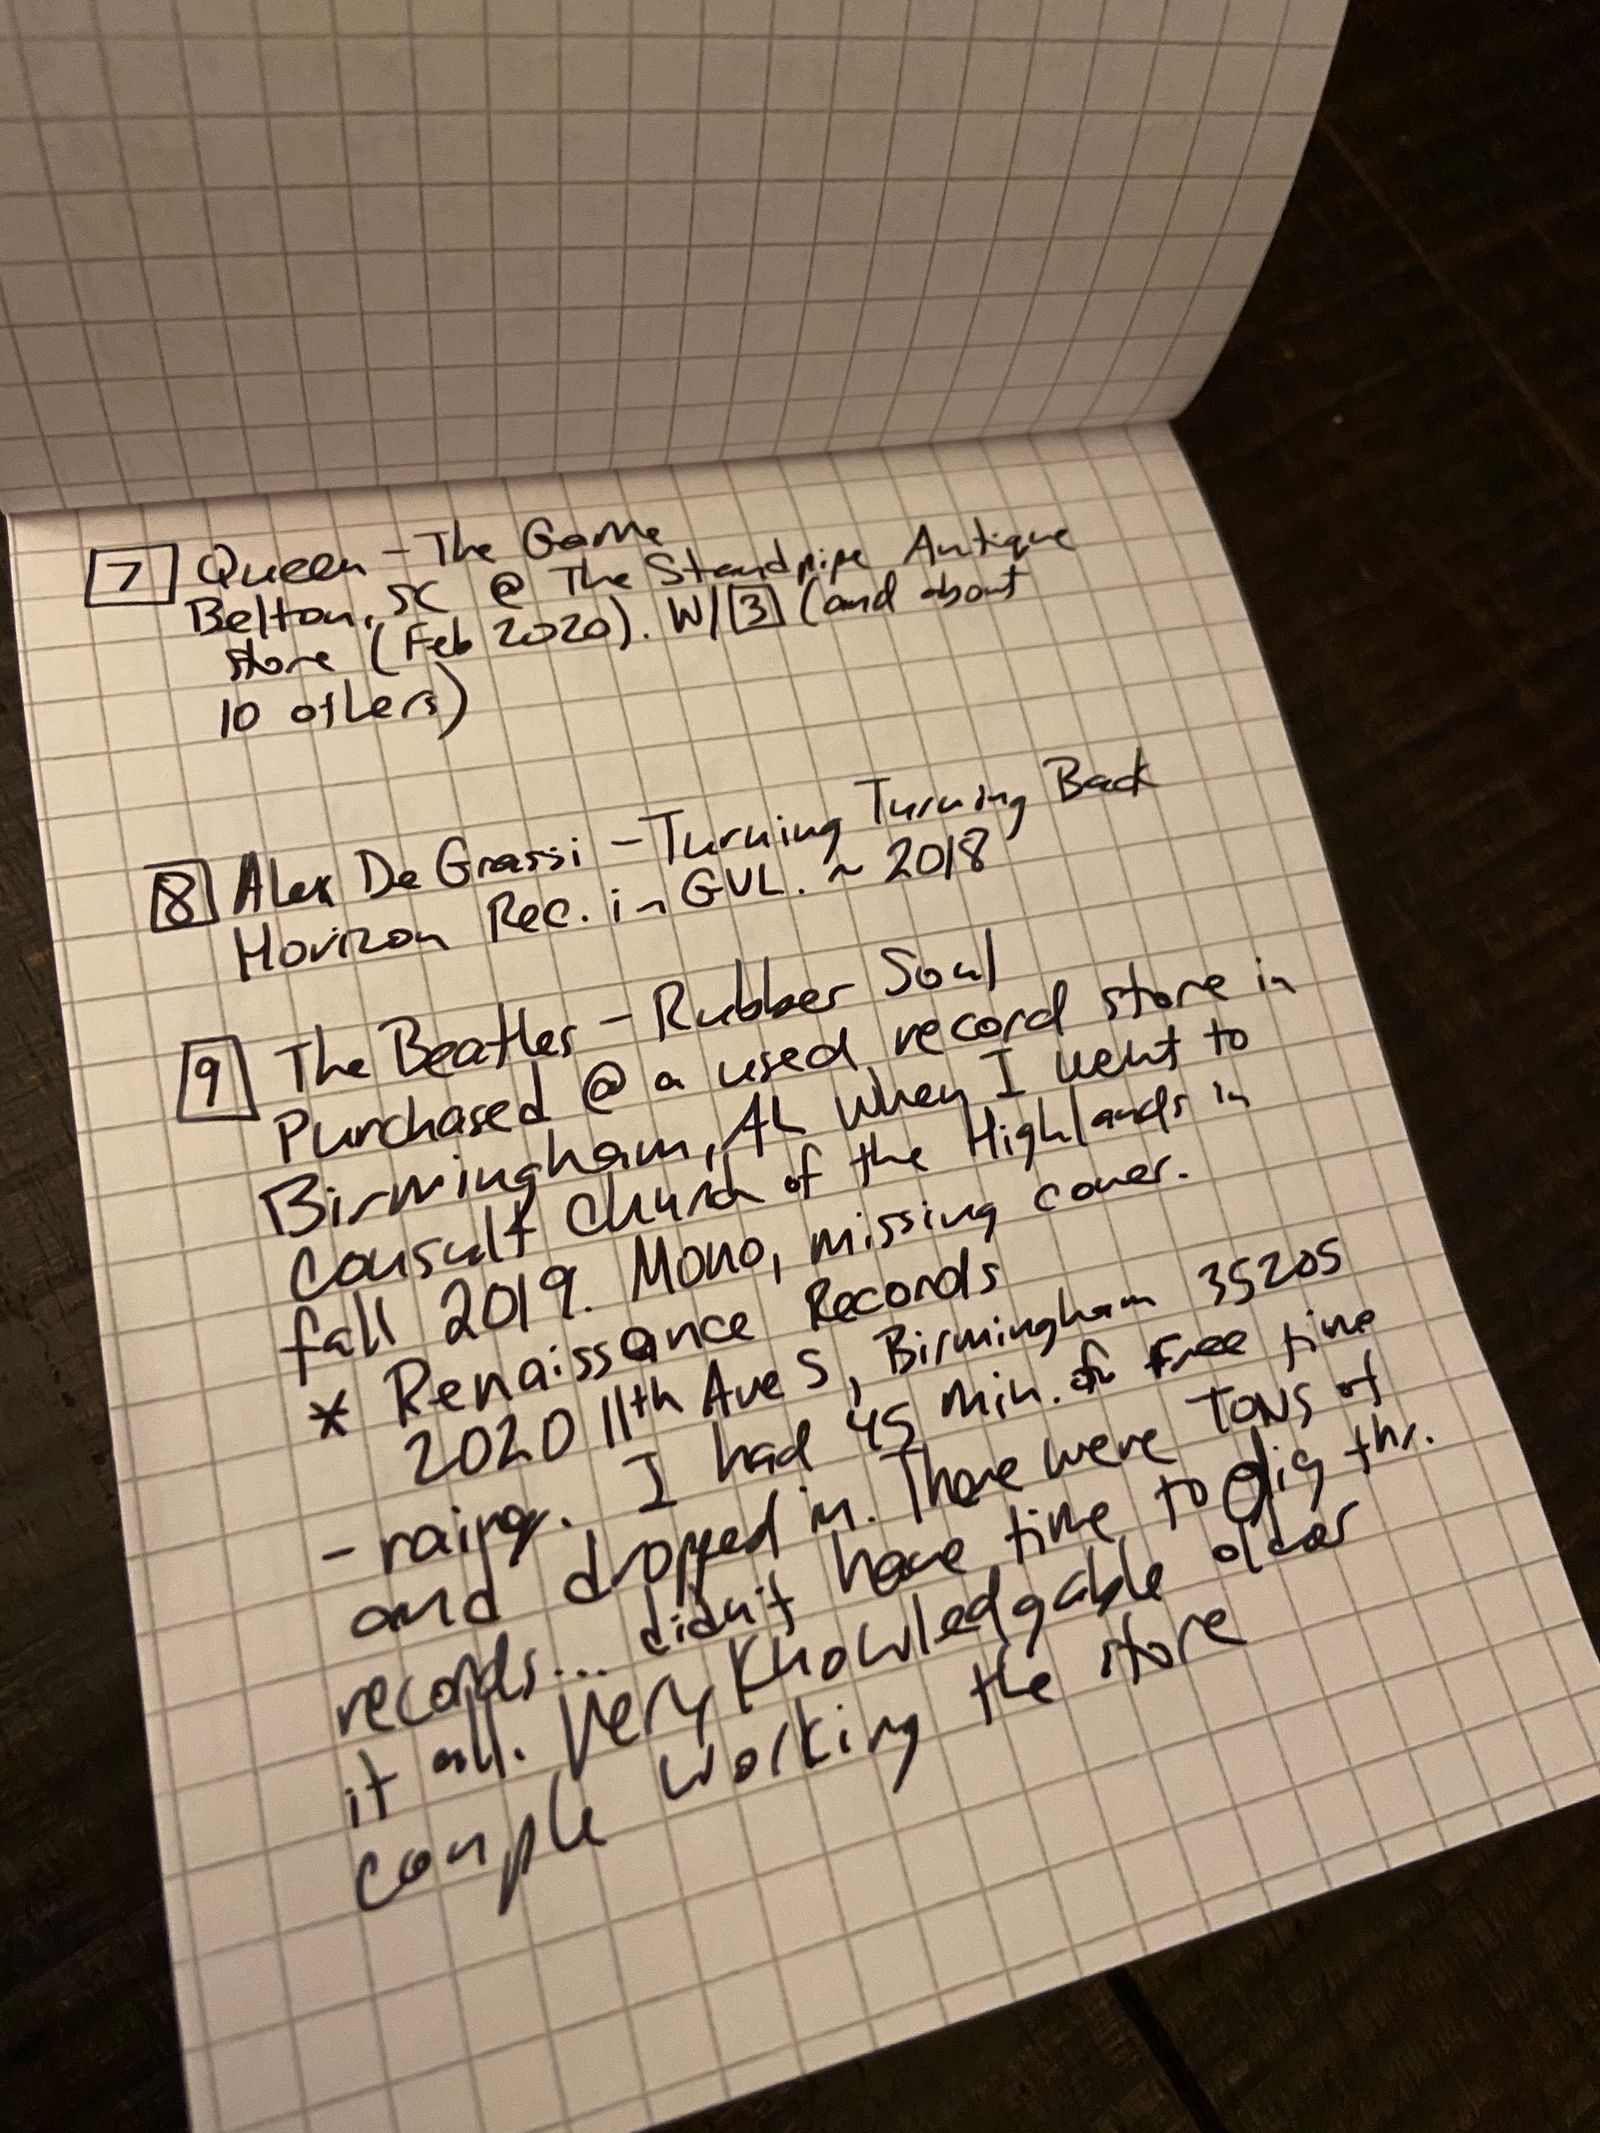 7 Queen - The Game
Belton, SC @ The Standpipe Antique
store (Feb 2020). W/ 3 (and about
10 others)
8 Alex De Grassi - Turning Turning Back
Horizon Rec. in GVL. ~ 2018
9 The Beatles - Rubber Soul
Purchased @ a used record store in
Birmingham, AL when I went to
consult Church of the Highlands in
fall 2019. Mono, missing cover.
* Renaissance Records
2020 11th Ave S, Birmingham 35205
- rainy. I had 45 min. of free time
and dropped in. There were TONS of
records... didn't have time to dig thr.
it all. Very knowledgable older
couple working the store